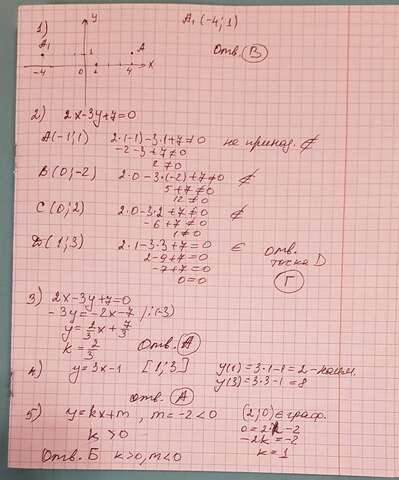 1)
y
A₁ (-4; 1)
A₁
1
A
-4
0
1
4
x
Отв. В
2) 2x-3y+7=0
A(-1; 1) 2·(-1)-3·1+7≠0 не принад. ∉
-2-3+7≠0
2≠0
B(0; -2) 2·0-3·(-2)+7≠0 ∉
5+7≠0
12≠0
C(0; 2) 2·0-3·2+7≠0 ∉
-6+7≠0
1≠0
D(1; 3) 2·1-3·3+7=0 ∈ отв.
2-9+7=0 точка D
-7+7=0 Г
0=0
3) 2x-3y+7=0
-3y=-2x-7 /:(-3)
y=2/3x+7/3
k=2/3 Отв. А
4) y=3x-1 [1; 3] y(1)=3·1-1=2-наим.
y(3)=3·3-1=8
отв. А
5) y=kx+m, m=-2<0 (2; 0)∈граф.
k>0 0=2·k-2
-2k=-2
Отв. Б k>0, m<0 k=1